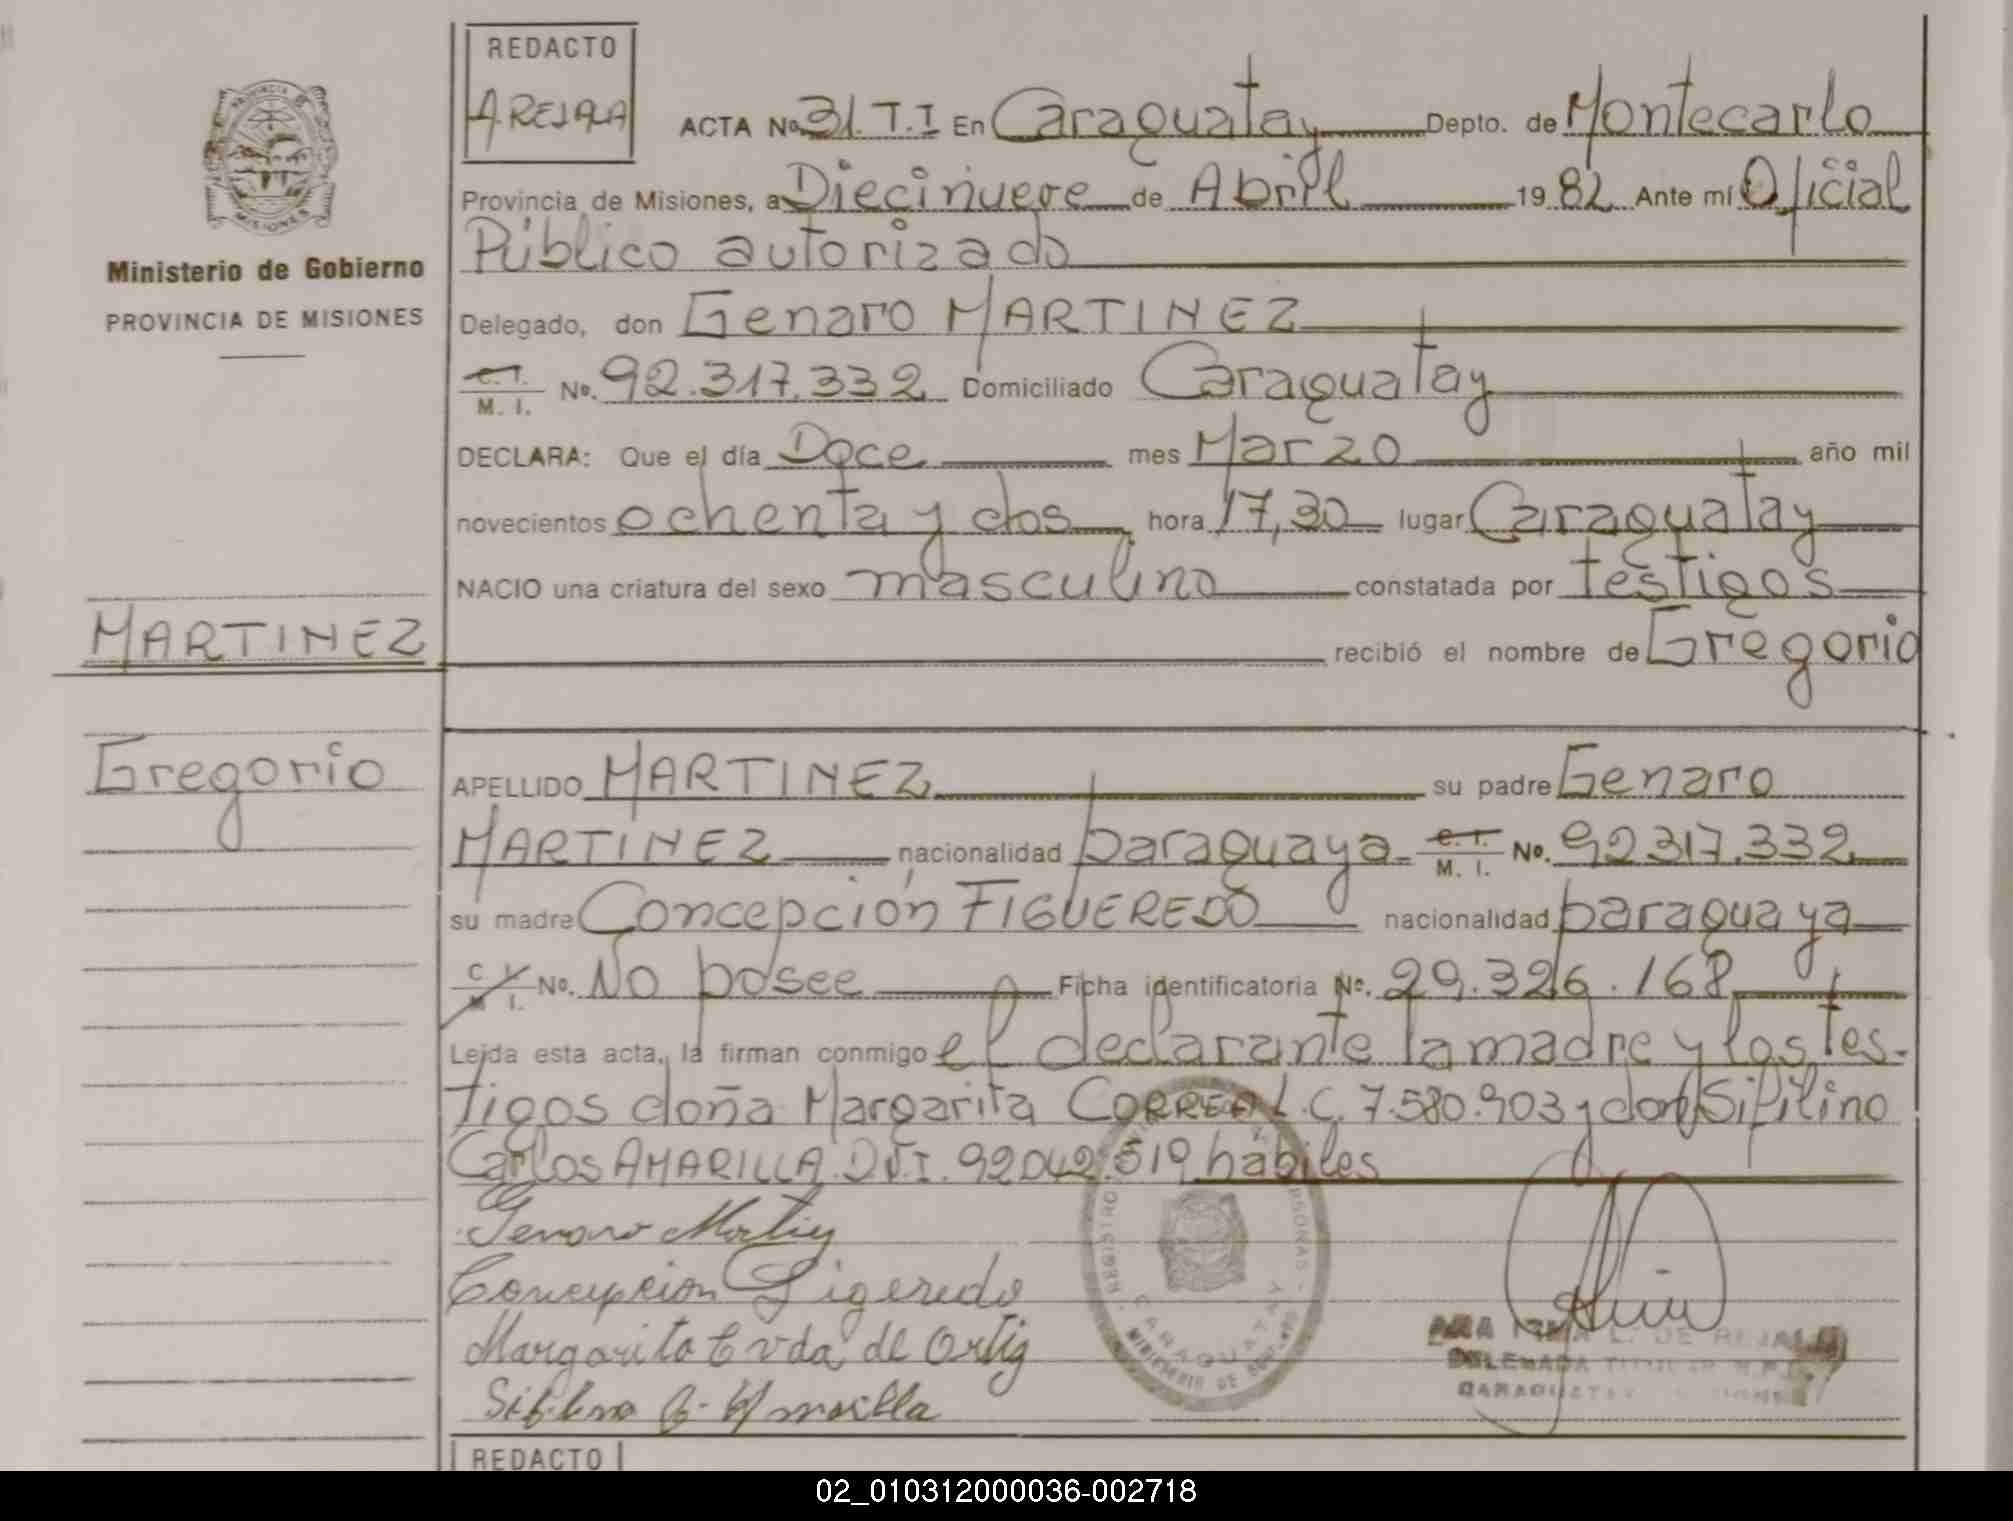 REDACTO
A. REJALA
ACTA No. 31. T.I En Caraguatay Depto. de Montecarlo
Provincia de Misiones, a Diecinueve de Abril 19 82 Ante mí Oficial
Público autorizado
Ministerio de Gobierno
PROVINCIA DE MISIONES
Delegado, don Genaro MARTINEZ
C. I. M. I. No. 92.317.332 Domiciliado Caraguatay
DECLARA: Que el día Doce mes Marzo año mil
novecientos ochenta y dos hora 17,30 lugar Caraguatay
NACIO una criatura del sexo masculino constatada por testigos
MARTINEZ
recibió el nombre de Gregorio
Gregorio
APELLIDO MARTINEZ su padre Genaro
MARTINEZ nacionalidad paraguaya C. I. M. I. No. 92317.332
su madre Concepción FIGUEREDO nacionalidad paraguaya
C I. M I. No. No posee Ficha identificatoria No. 29.326.168
Leída esta acta, la firman conmigo el declarante la madre y los tes-
tigos doña Margarita CORREA L.C. 7.580.903 y don Sifilino
Carlos AMARILLA D.N.I. 92042.519 hábiles
Genaro Martinez
Concepcion Figeredo
Margarita C vda de Ortiz
REGISTRO PERSONAS
CARAGUATAY
MINISTERIO DE GOBIERNO
DELEGADA TITULAR
CARAGUATAY
REDACTO
02_010312000036-002718